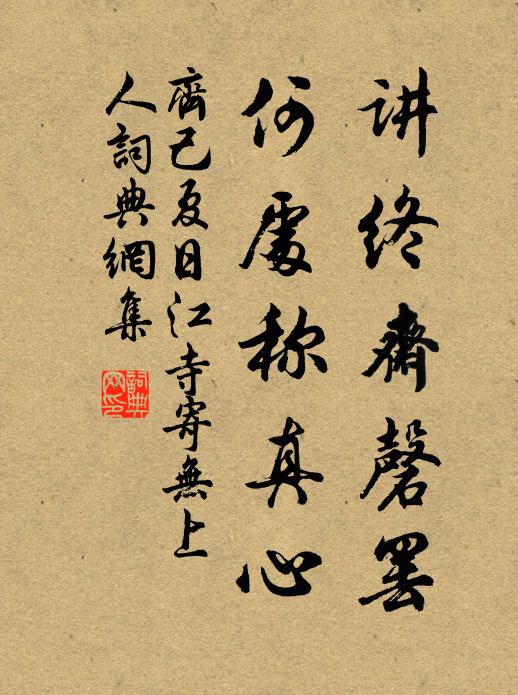 讲终斋磬罢
何處称真心
齊己夏日江寺寄無上
人詞典網集
詞典網印